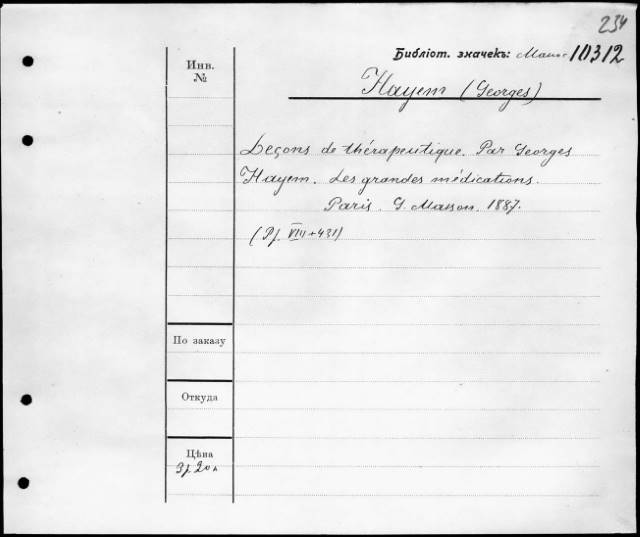 234
Библіот. значекъ: 10312
Инв.
№
Hayem (Georges)
Leçons de thérapeutique. Par Georges
Hayem. Les grandes médications.
Paris. G. Masson. 1887.
(Pf. VIII + 431)
По заказу
Откуда
Цѣна
3р 20к